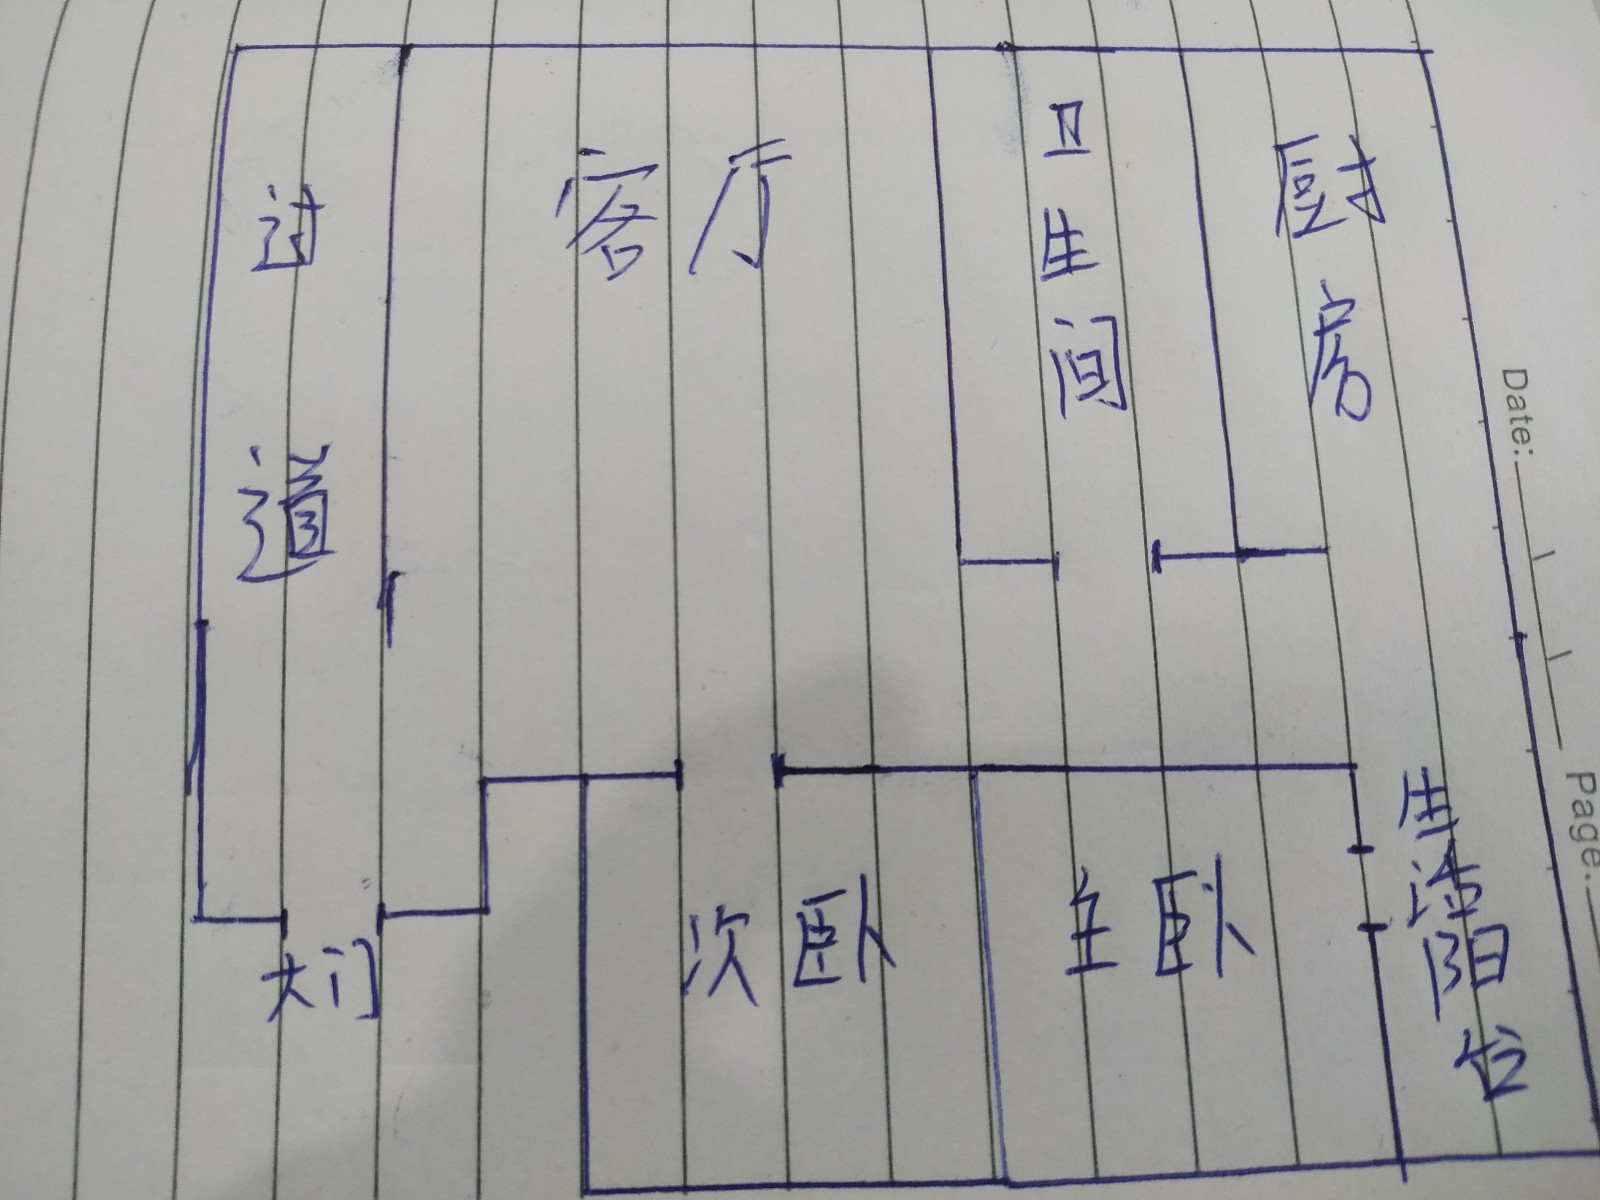 过道
客厅
卫生间
厨房
Date:
Page.
大门
次卧
主卧
生活阳台